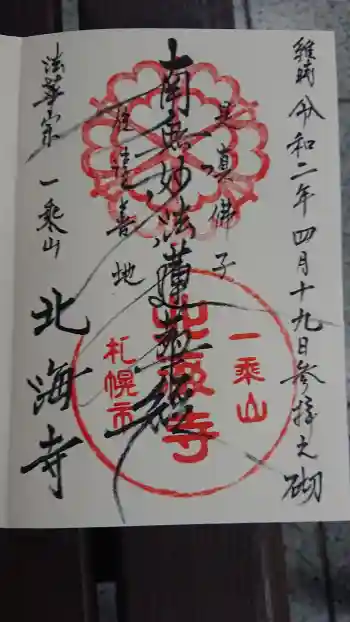 維時令和二年四月十九日参拝之砌
是真佛子
南無妙法蓮華経
住淳善地
法華宗 一乗山
北海寺
一乗山
北海寺
札幌市